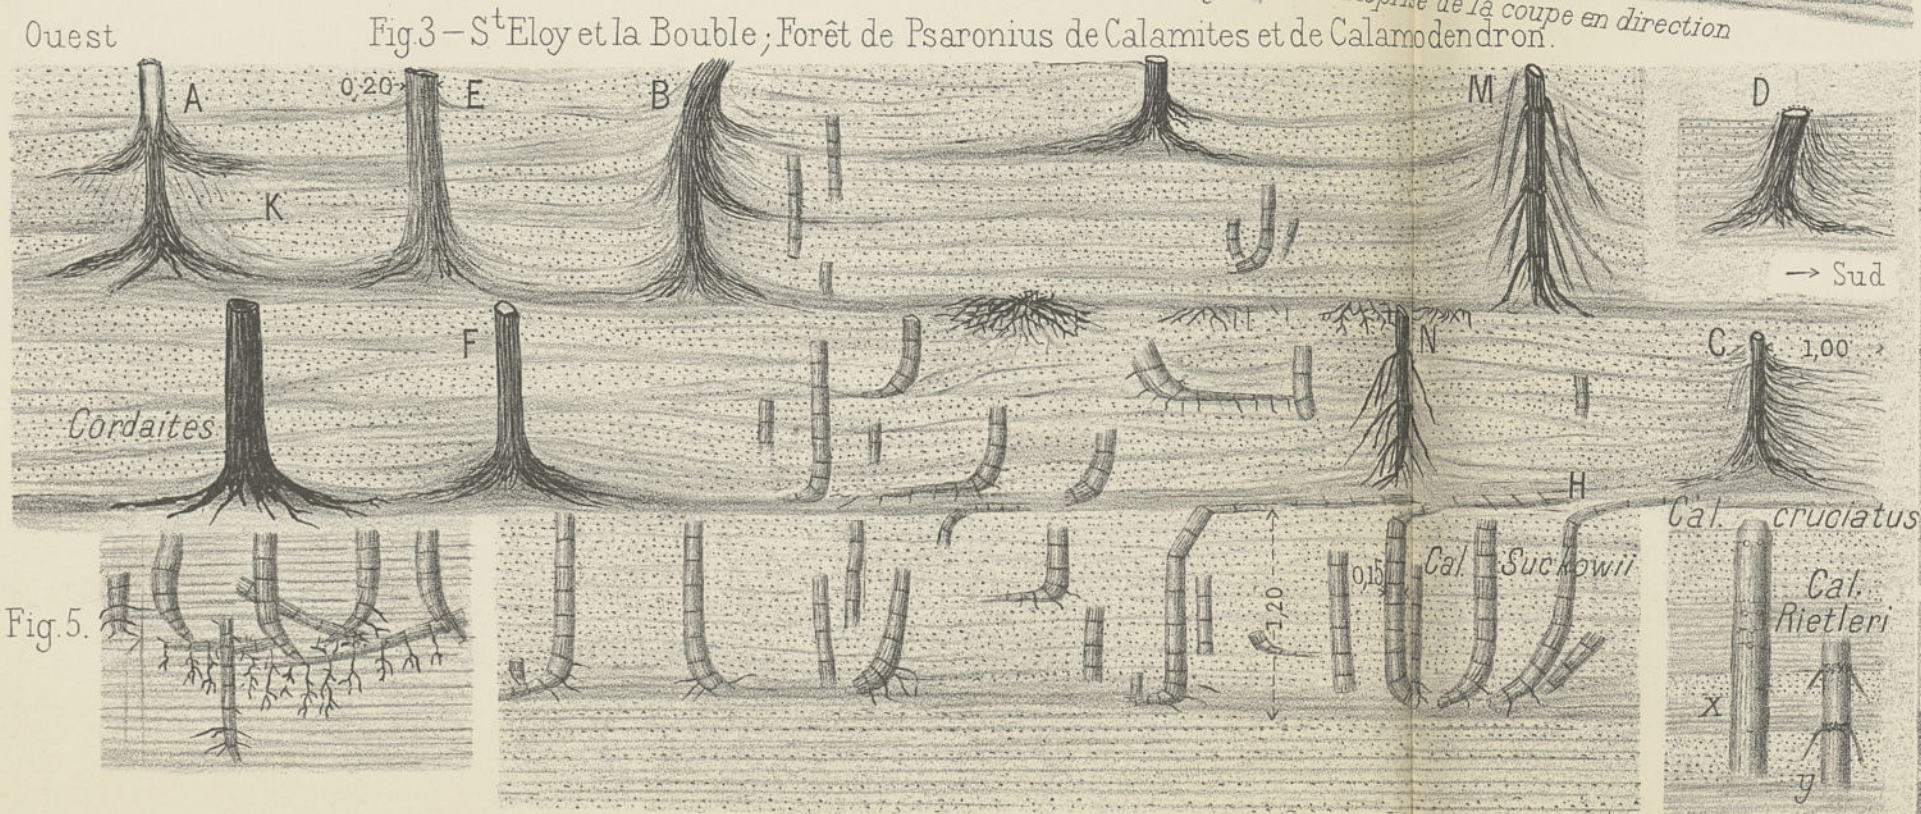 de la coupe en direction
Ouest
Fig.3 – St Eloy et la Bouble; Forêt de Psaronius de Calamites et de Calamodendron.
A
0,20
E
B
M
D
K
→ Sud
F
N
C
1,00
Cordaites
H
Cal. cruciatus
Cal. Suckowii
0,15
Cal.
Rietleri
1,20
Fig.5.
X
y